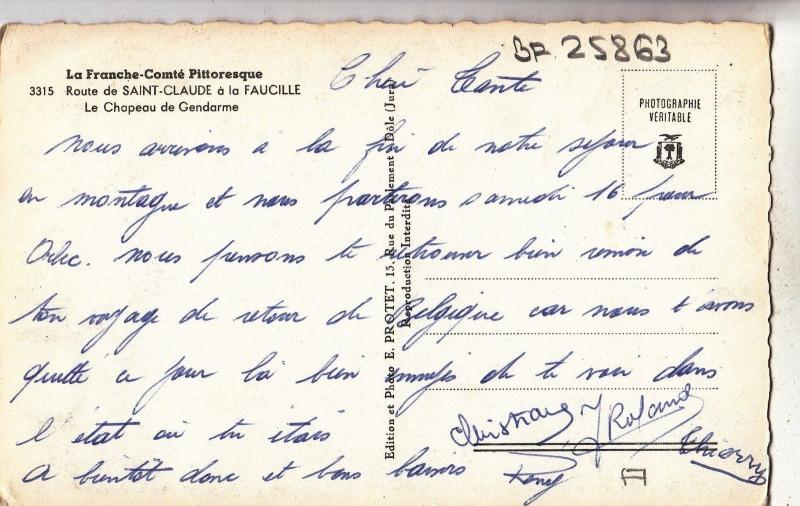 BF 25863
La Franche-Comté Pittoresque
3315 Route de SAINT-CLAUDE à la FAUCILLE
Le Chapeau de Gendarme
PHOTOGRAPHIE
VÉRITABLE
Edition et Photo E. PROTET, 15, Rue du Parlement - Dôle (Jura)
Reproduction Interdite
Chère Tante
nous arrivons a la fin de notre séjour
en montagne et nous partirons samedi 16 pour
Orbec. nous pensons te retrouver bien remise de
ton voyage de retour de Belgique car nous t'avons
quitté ce jour là bien de te voir dans
l'état où tu étais
A bientôt donc et bons baisers
Roland
Thierry
Remy